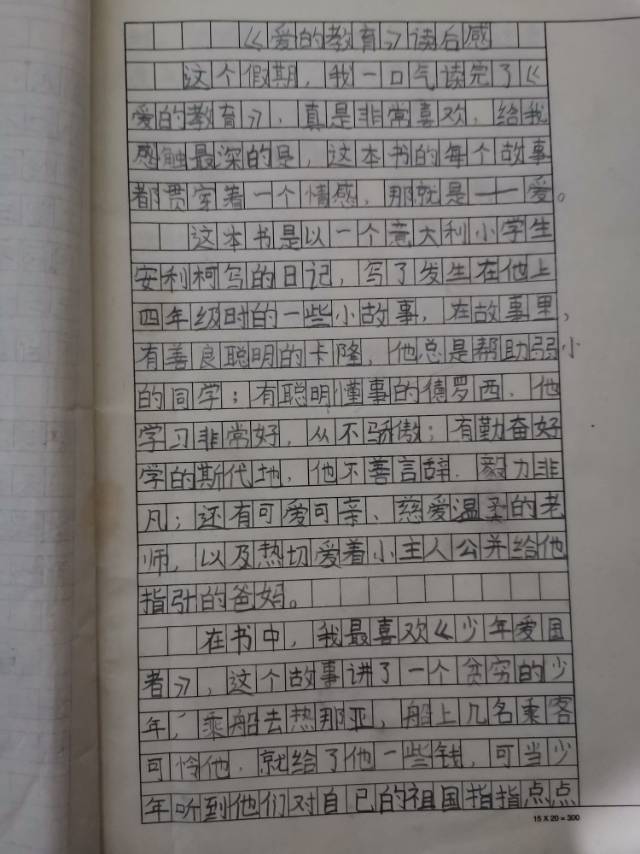 《爱的教育》读后感
这个假期，我一口气读完了《
爱的教育》，真是非常喜欢，给我
感触最深的是，这本书的每个故事
都贯穿着一个情感，那就是——爱。
这本书是以一个意大利小学生
安利柯写的日记，写了发生在他上
四年级时的一些小故事，在故事里，
有善良聪明的卡隆，他总是帮助弱小
的同学；有聪明懂事的德罗西，他
学习非常好，从不骄傲；有勤奋好
学的斯代地，他不善言辞，毅力非
凡；还有可爱可亲、慈爱温柔的老
师，以及热切爱着小主人公并给他
指引的爸妈。
在书中，我最喜欢《少年爱国
者》，这个故事讲了一个贫穷的少
年，乘船去热那亚，船上几名乘客
可怜他，就给了他一些钱，可当少
年听到他们对自己的祖国指指点点
15×20=300